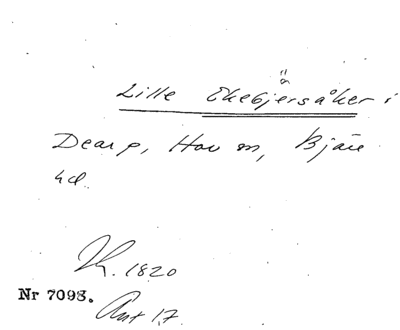 ä
Lille Ekebjersåker i
Dearp, Hov sn, Bjäre
hd.
Th. 1820
Nr 7098.
Ant 17